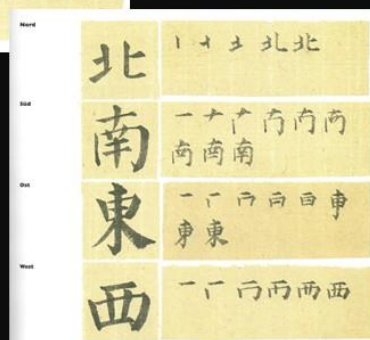 Nord
北
北
Süd
南
一 十
南
Ost
東
一
東
West
西
一
西